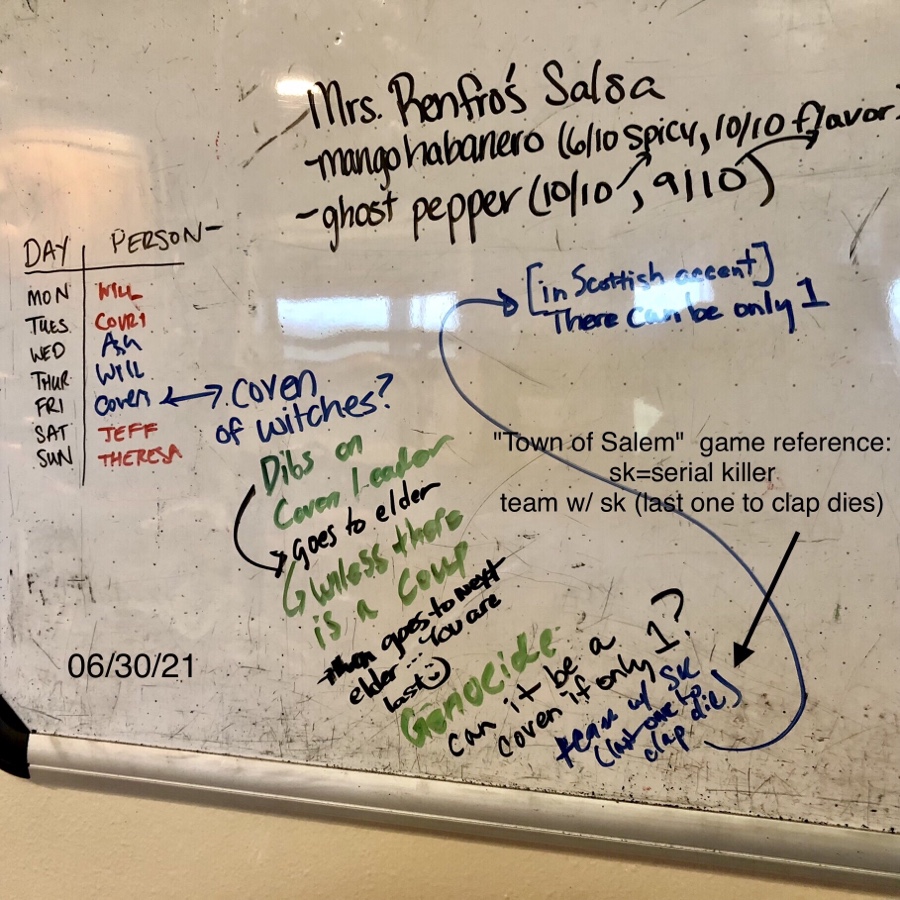 Mrs. Renfro's Salsa
-mango habanero (6/10 spicy, 10/10 flavor)
-ghost pepper (10/10, 9/10)
DAY PERSON-
MON WILL
TUES COURT
WED Ash
THUR WILL
FRI Coven
SAT JEFF
SUN THERESA
coven
of witches?
Dibs on
Coven Leader
goes to elder
unless there
is a coup
then goes to next
elder... You are
last
Genocide
can it be a
coven if only 1?
team w/ SK
(last one to
clap dies)
[in Scottish accent]
There can be only 1
"Town of Salem" game reference:
sk=serial killer
team w/ sk (last one to clap dies)
06/30/21